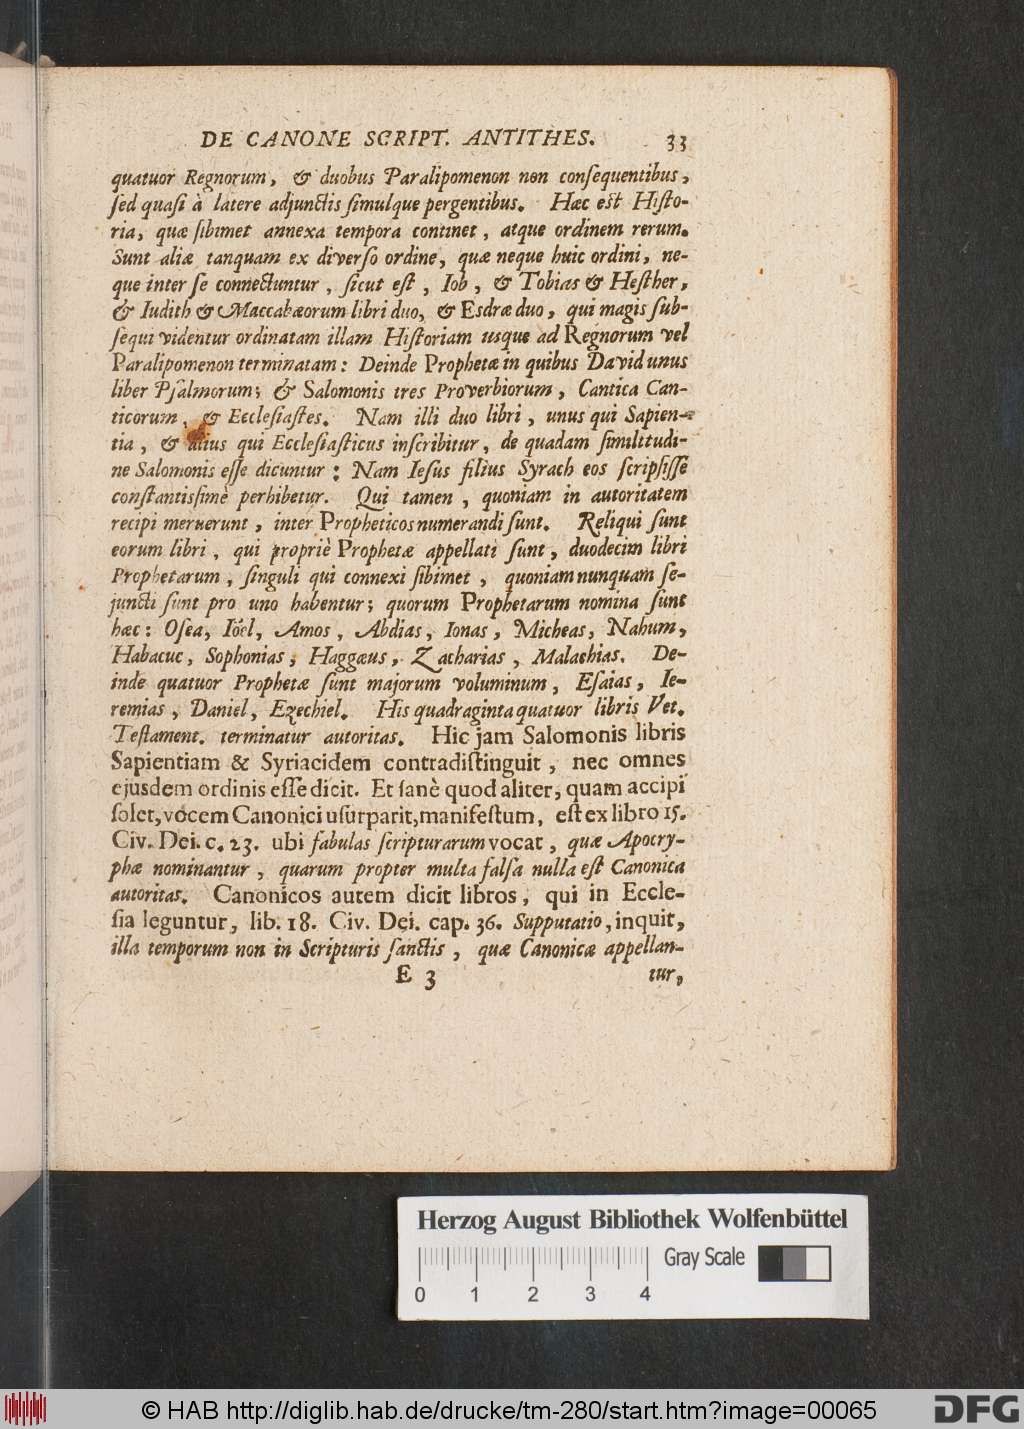 DE CANONE SCRIPT. ANTITHES. 33
quatuor Regnorum, & duobus Paralipomenon non conſequentibus,
ſed quaſi à latere adjunctis ſimulque pergentibus. Hæc eſt Hiſto-
ria, quæ ſibimet annexa tempora continet, atque ordinem rerum.
Sunt aliæ tanquam ex diverſo ordine, quæ neque huic ordini, ne-
que inter ſe connectuntur, ſicut eſt, Iob, & Tobias & Heſther,
& Iudith & Maccabæorum libri duo, & Esdræ duo, qui magis ſub-
ſequi videntur ordinatam illam Hiſtoriam usque ad Regnorum vel
Paralipomenon terminatam: Deinde Prophetæ in quibus David unus
liber Pſalmorum; & Salomonis tres Proverbiorum, Cantica Can-
ticorum, & Eccleſiaſtes. Nam illi duo libri, unus qui Sapien-
tia, & alius qui Eccleſiaſticus inſcribitur, de quadam ſimilitudi-
ne Salomonis eſſe dicuntur: Nam Ieſus filius Syrach eos ſcripſiſſe
conſtantiſſimè perhibetur. Qui tamen, quoniam in autoritatem
recipi meruerunt, inter Propheticos numerandi ſunt. Reliqui ſunt
eorum libri, qui propriè Prophetæ appellati ſunt, duodecim libri
Prophetarum, ſinguli qui connexi ſibimet, quoniam nunquam ſe-
juncti ſunt pro uno habentur; quorum Prophetarum nomina ſunt
hæc: Oſea, Ioël, Amos, Abdias, Ionas, Micheas, Nahum,
Habacuc, Sophonias, Haggæus, Zacharias, Malachias. De-
inde quatuor Prophetæ ſunt majorum voluminum, Eſaias, Ie-
remias, Daniel, Ezechiel. His quadraginta quatuor libris Vet.
Teſtament. terminatur autoritas. Hic jam Salomonis libris
Sapientiam & Syriacidem contradiſtinguit, nec omnes
ejusdem ordinis eſſe dicit. Et ſanè quod aliter, quam accipi
ſolet, vocem Canonici uſurparit, manifeſtum, eſt ex libro 15.
Civ. Dei. c. 23. ubi fabulas ſcripturarum vocat, quæ Apocry-
phæ nominantur, quarum propter multa falſa nulla eſt Canonica
autoritas. Canonicos autem dicit libros, qui in Eccle-
ſia leguntur, lib. 18. Civ. Dei. cap. 36. Supputatio, inquit,
illa temporum non in Scripturis ſanctis, quæ Canonicæ appellan-
E 3 tur,
Herzog August Bibliothek Wolfenbüttel
Gray Scale
0 1 2 3 4
© HAB http://diglib.hab.de/drucke/tm-280/start.htm?image=00065
DFG